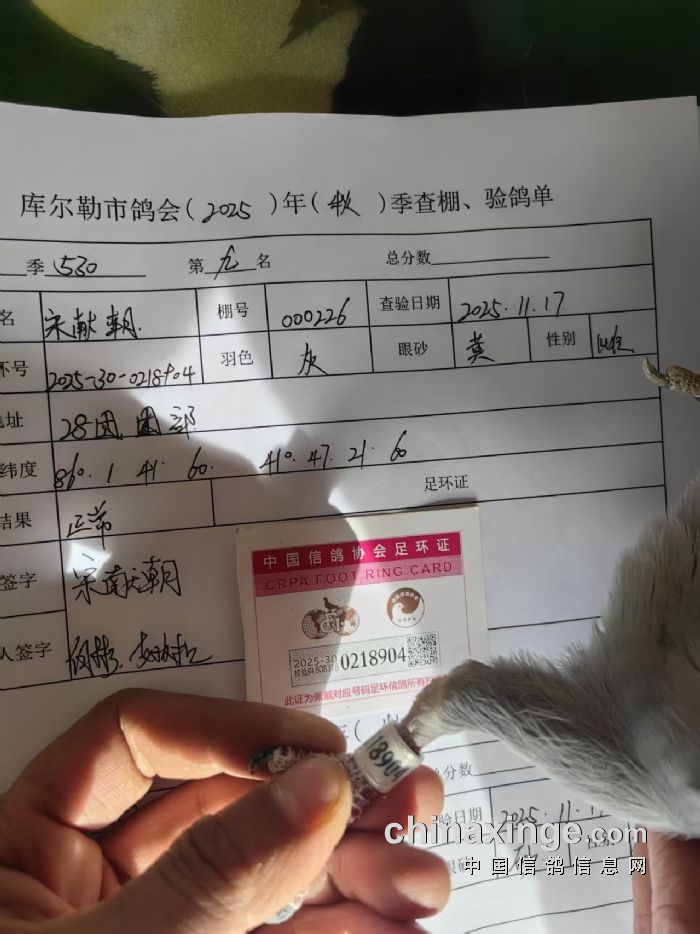 库尔勒市鸽会(2025)年(秋)季查棚、验鸽单
季530 第九名 总分数
名 宋献朝 棚号 000226 查验日期 2025.11.17
环号 2025-30-0218904 羽色 灰 眼砂 黄 性别
址 28团团部
纬度 86°.1 41. 60. 41°.47.21.60
结果 正常 足环证
签字 宋献朝
人签字
中国信鸽协会足环证
CRPA FOOT RING CARD
2025-30
0218904
校验码
此证为佩戴对应号码足环信鸽所有
18904
年(
总分数
查验日期 2025.11.17
眼砂 性别
chinaxinge.com
中国信鸽信息网